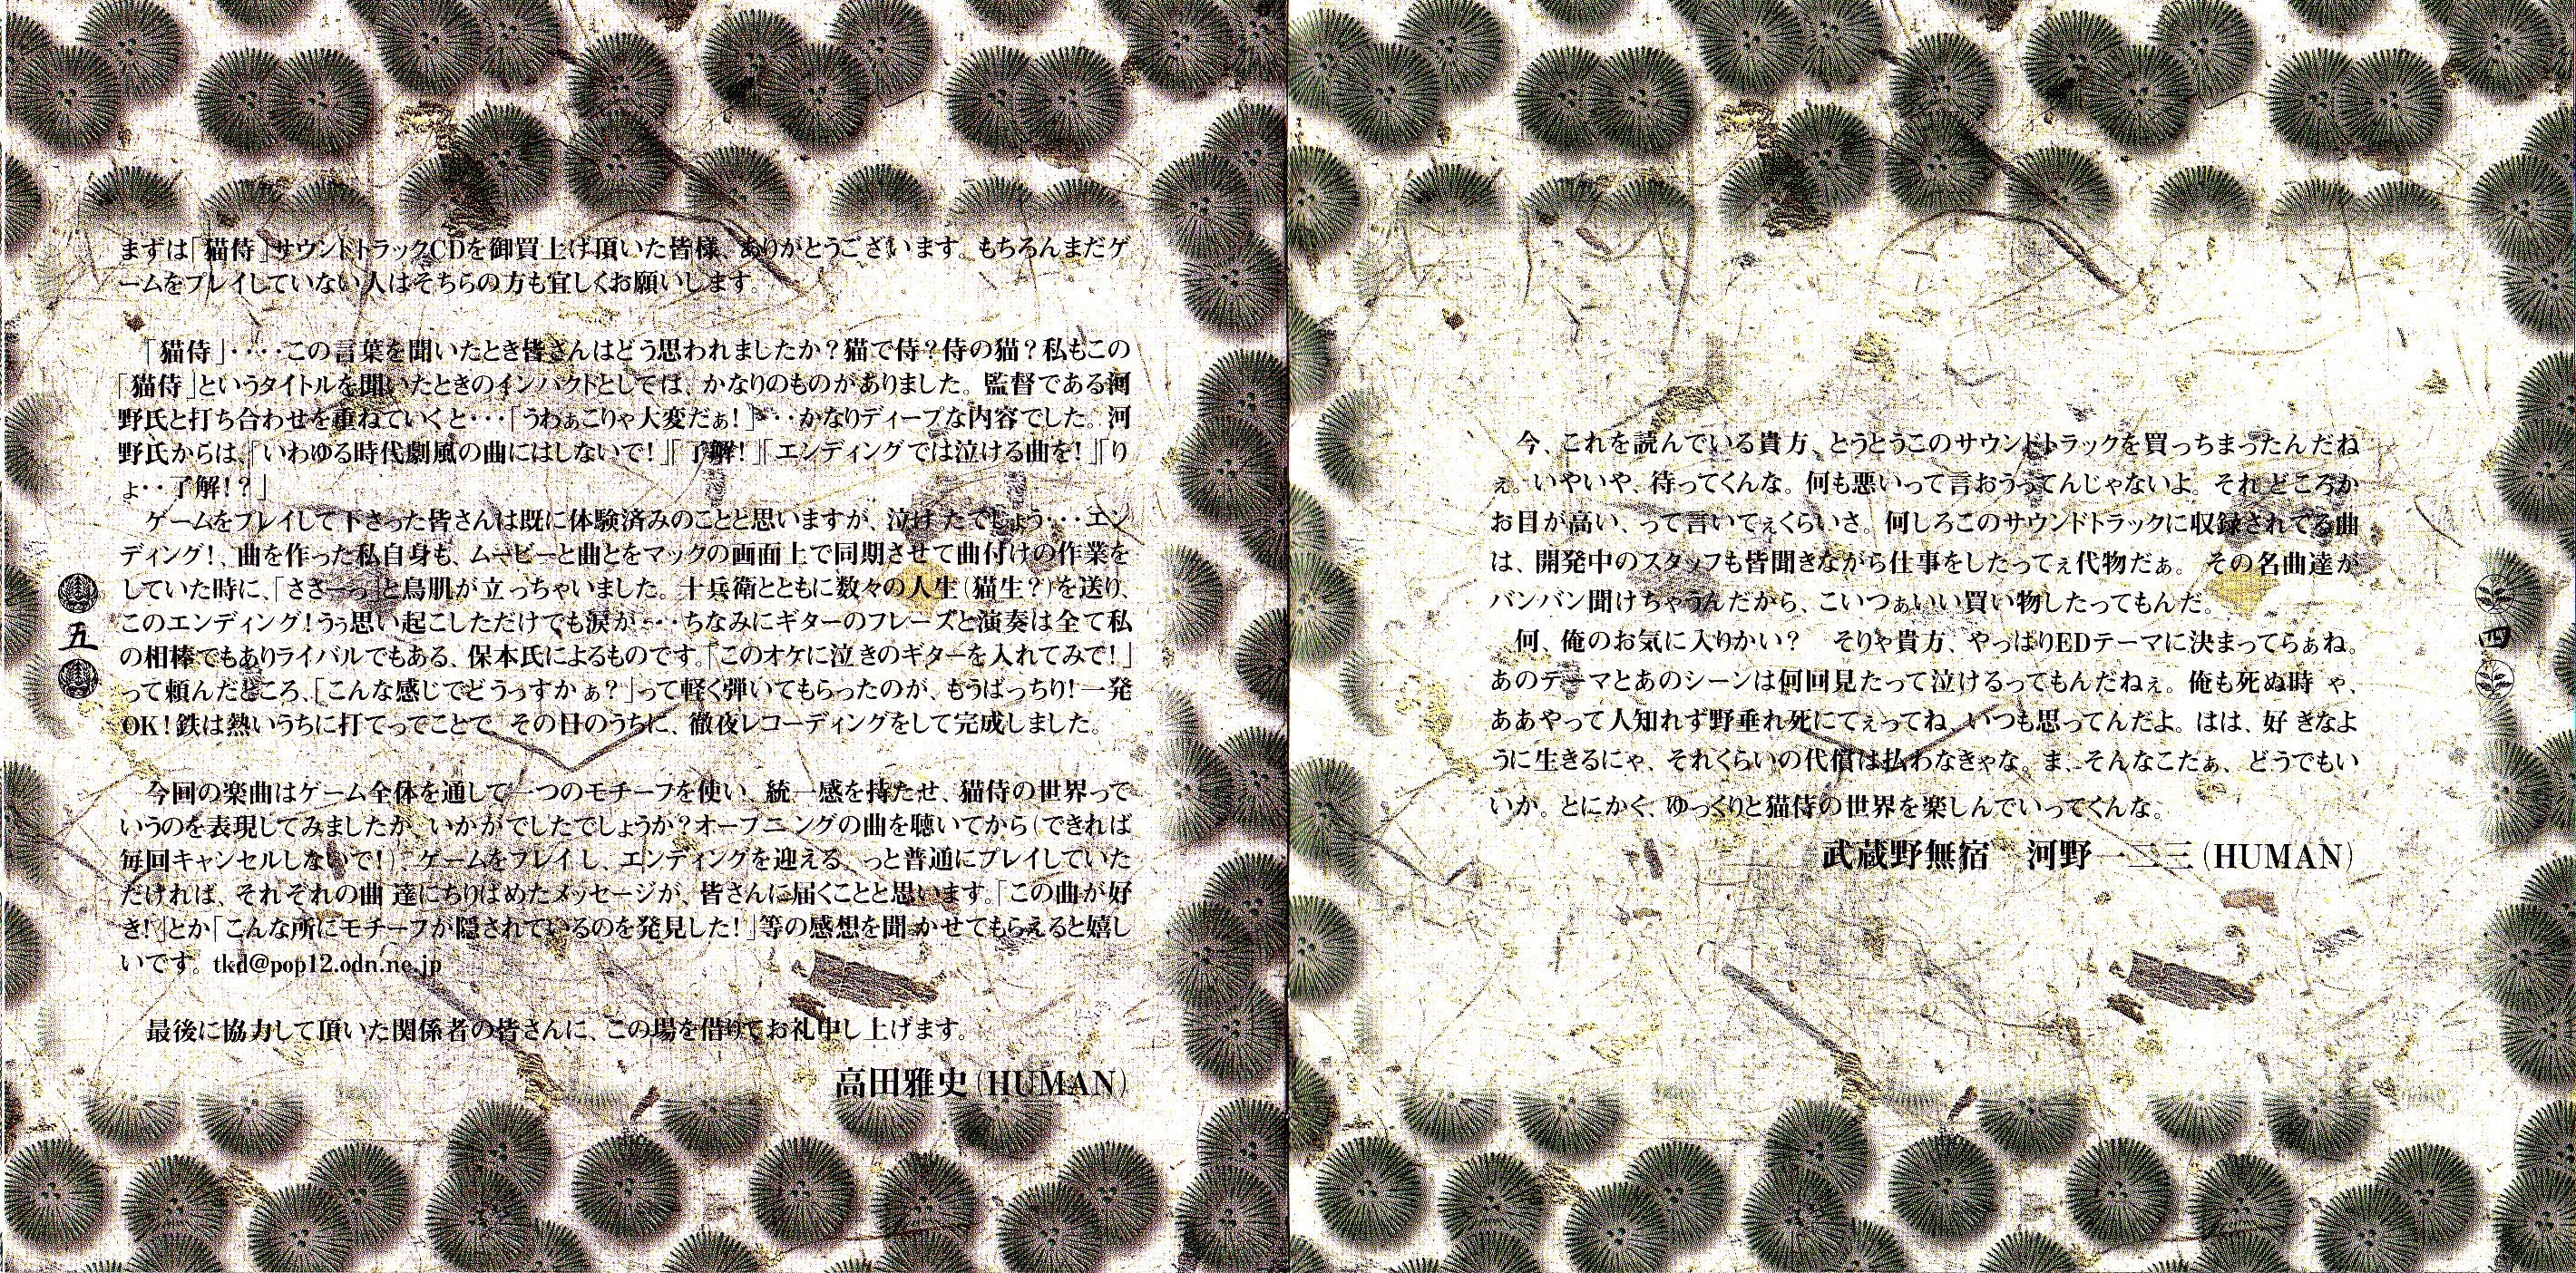 今、これを読んでいる貴方、とうとうこのサウンドトラックを買っちまったんだね
ぇ。いやいや、待ってくんな。何も悪いって言おうってんじゃないよ。それどころか
お目が高い、って言いてぇくらいさ。何しろこのサウンドトラックに収録されてる曲
は、開発中のスタッフも皆聞きながら仕事をしたってぇ代物だぁ。その名曲達が
バンバン聞けちゃうんだから、こいつぁいい買い物したってもんだ。
何、俺のお気に入りかい?　そりゃ貴方、やっぱりEDテーマに決まってらぁね。
あのテーマとあのシーンは何回見たって泣けるってもんだねぇ。俺も死ぬ時ゃ、
ああやって人知れず野垂れ死にてぇってね、いつも思ってんだよ。はは、好きなよ
うに生きるにゃ、それくらいの代償は払わなきゃな。ま、そんなこたぁ、どうでもい
いか。とにかく、ゆっくりと猫侍の世界を楽しんでいってくんな。
武蔵野無宿　河野一二三(HUMAN)
四
まずは「猫侍」サウンドトラックCDを御買上げ頂いた皆様、ありがとうございます。もちろんまだゲ
ームをプレイしていない人はそちらの方も宜しくお願いします。
「猫侍」・・・・この言葉を聞いたとき皆さんはどう思われましたか?猫で侍?侍の猫?私もこの
「猫侍」というタイトルを聞いたときのインパクトとしては、かなりのものがありました。監督である河
野氏と打ち合わせを重ねていくと・・・「うわぁこりゃ大変だぁ!」・・・かなりディープな内容でした。河
野氏からは、『いわゆる時代劇風の曲にはしないで!』『了解!』『エンディングでは泣ける曲を!』『り
ょ・・了解!?』
ゲームをプレイして下さった皆さんは既に体験済みのことと思いますが、泣けたでしょう・・・エン
ディング!、曲を作った私自身も、ムービーと曲とをマックの画面上で同期させて曲付けの作業を
していた時に、「ささーっ」と鳥肌が立っちゃいました。十兵衛とともに数々の人生(猫生?)を送り、
このエンディング!うぅ思い起こしただけでも涙が・・・ちなみにギターのフレーズと演奏は全て私
の相棒でもありライバルでもある、保本氏によるものです。「このオケに泣きのギターを入れてみて!」
って頼んだところ、「こんな感じでどうっすかぁ?」って軽く弾いてもらったのが、もうばっちり!一発
OK!鉄は熱いうちに打てってことで、その日のうちに、徹夜レコーディングをして完成しました。
今回の楽曲はゲーム全体を通して一つのモチーフを使い、統一感を持たせ、猫侍の世界って
いうのを表現してみましたが、いかがでしたでしょうか?オープニングの曲を聴いてから(できれば
毎回キャンセルしないで!)、ゲームをプレイし、エンディングを迎える、っと普通にプレイしていた
だければ、それぞれの曲達にちりばめたメッセージが、皆さんに届くことと思います。「この曲が好
き!」とか「こんな所にモチーフが隠されているのを発見した!」等の感想を聞かせてもらえると嬉し
いです。tkd@pop12.odn.ne.jp
最後に協力して頂いた関係者の皆さんに、この場を借りてお礼申し上げます。
高田雅史(HUMAN)
五